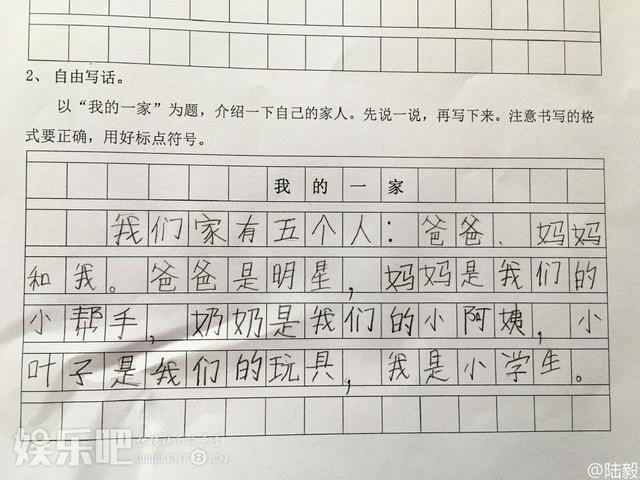 2、自由写话。
以“我的一家”为题，介绍一下自己的家人。先说一说，再写下来。注意书写的格
式要正确，用好标点符号。
我的一家
我们家有五个人：爸爸、妈妈
和我。爸爸是明星，妈妈是我们的
小帮手，奶奶是我们的小阿姨，小
叶子是我们的玩具，我是小学生。
娱乐吧
WWW.ENT8.CN
@陆毅